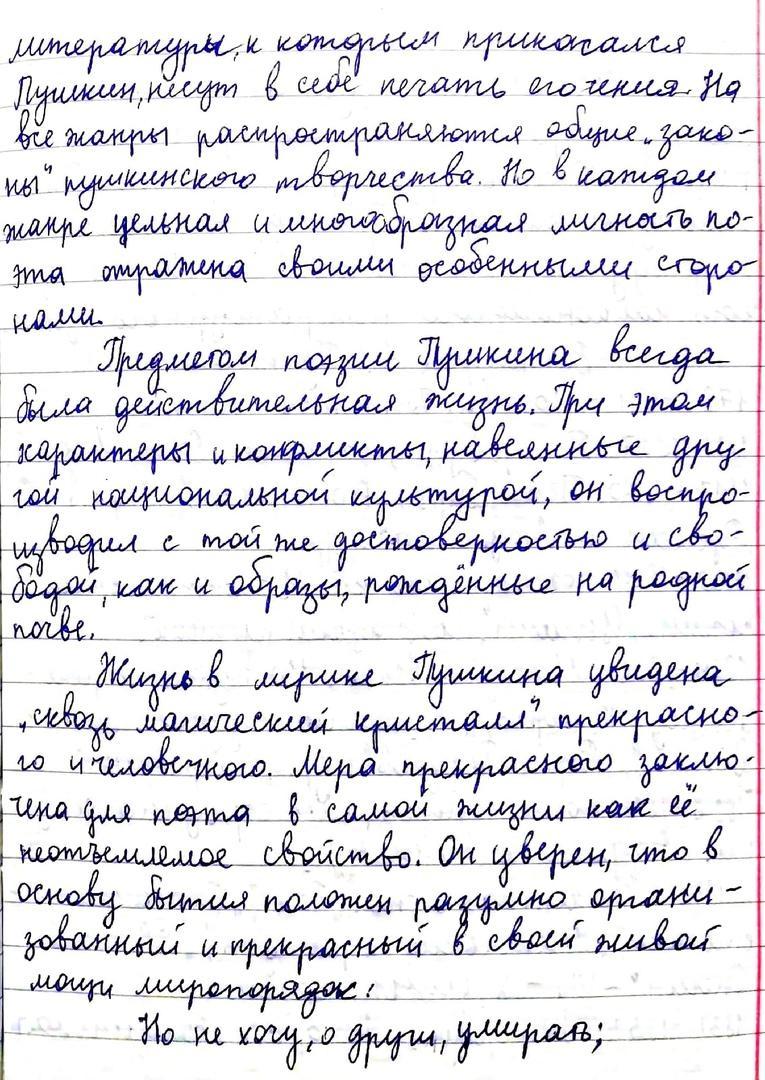 литературы, к которым прикасался
Пушкин, несут в себе печать его гения. На
все жанры распространяются общие „зако-
ны" пушкинского творчества. Но в каждом
жанре цельная и многообразная личность по-
эта отражена своими особенными сторо-
нами.
Предметом поэзии Пушкина всегда
была действительная жизнь. При этом
характеры и конфликты, навеянные дру-
гой национальной культурой, он воспро-
изводил с той же достоверностью и сво-
бодой, как и образы, рождённые на родной
почве.
Жизнь в лирике Пушкина увидена
„сквозь магический кристалл" прекрасно-
го и человечного. Мера прекрасного заклю-
чена для поэта в самой жизни как её
неотъемлемое свойство. Он уверен, что в
основу бытия положен разумно органи-
зованный и прекрасный в своей живой
мощи миропорядок:
Но не хочу, о други, умирать;